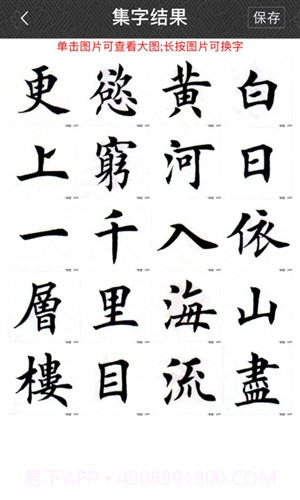 集字结果
保存
单击图片可查看大图;长按图片可换字
白日依山盡
黄河入海流
慾窮千里目
更上一層樓
易下APP·4008891800.COM